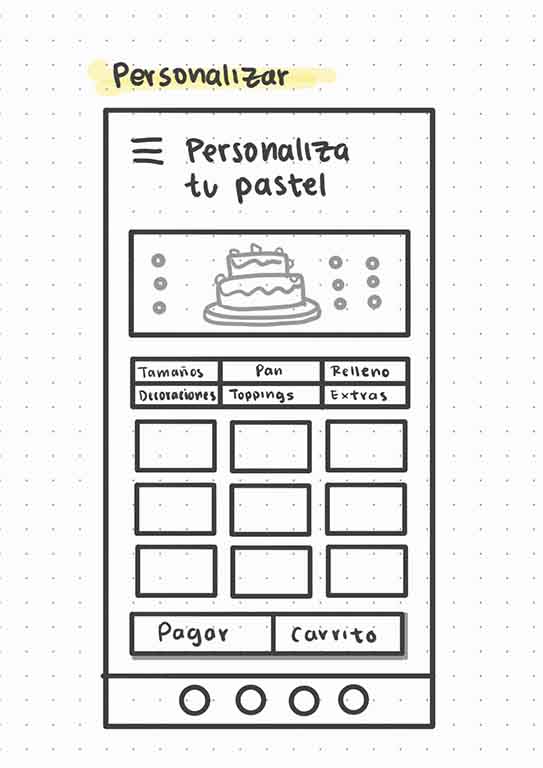 Personalizar
Personaliza
tu pastel
Tamaños Pan Relleno
Decoraciones Toppings Extras
Pagar Carrito